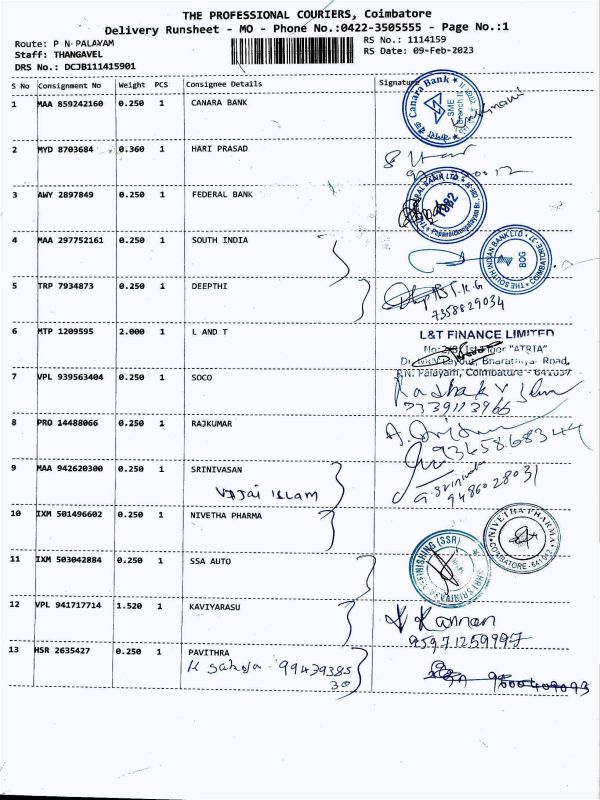 THE PROFESSIONAL COURIERS, Coimbatore
Delivery Runsheet - MO - Phone No.:0422-3505555 - Page No.:1
Route: P N PALAYAM
RS No.: 1114159
Staff: THANGAVEL
RS Date: 09-Feb-2023
DRS No.: DCJB111415901
S No Consignment No Weight PCS Consignee Details Signature
1 MAA 859242160 0.250 1 CANARA BANK
Canara Bank
SME
2 MYD 8703684 0.360 1 HARI PRASAD
3 AWY 2897849 0.250 1 FEDERAL BANK
4 MAA 297752161 0.250 1 SOUTH INDIA
THE SOUTH INDIAN BANK LTD.
BOG
5 TRP 7934873 0.250 1 DEEPTHI
7358829034
6 MTP 1209595 2.000 1 L AND T
L&T FINANCE LIMITED
Ist Floor "ATRIA"
Layout, Bharathiyar Road,
P.N. Palayam, Coimbatore - 641037
7 VPL 939563404 0.250 1 SOCO
7339113966
8 PRO 14488066 0.250 1 RAJKUMAR
9365868344
9 MAA 942620300 0.250 1 SRINIVASAN
G. Srinivasan
9486028031
10 IXM 501496602 0.250 1 NIVETHA PHARMA
NIVETHA PHARMA
COIMBATORE - 641
11 IXM 503042884 0.250 1 SSA AUTO
FINISHING (SSR)
12 VPL 941717714 1.520 1 KAVIYARASU
K Kannan
9597125999 7
13 HSR 2635427 0.250 1 PAVITHRA
9943938530